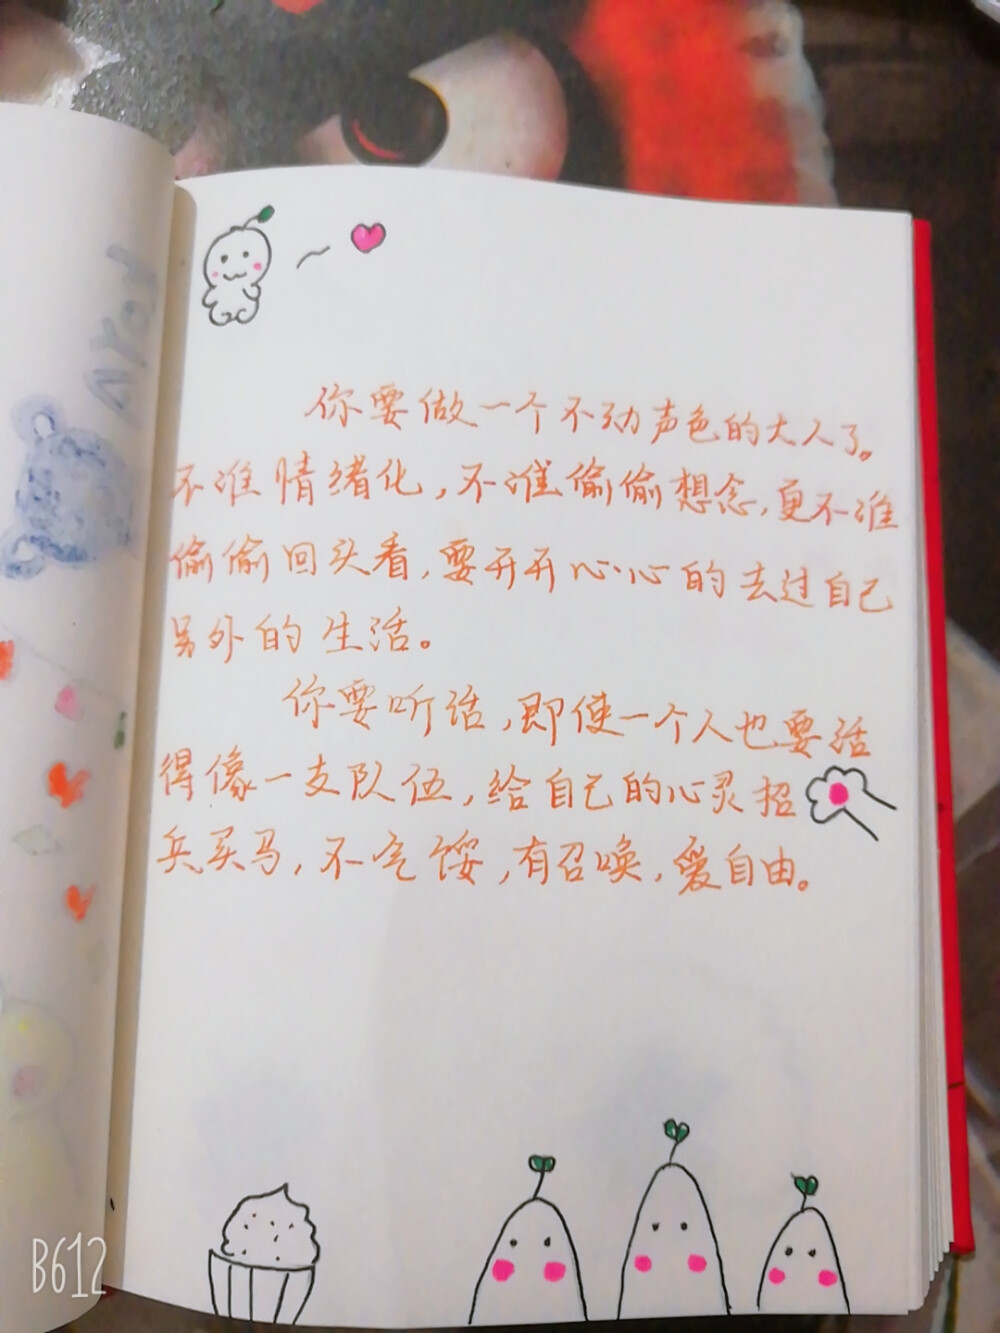 你要做一个不动声色的大人了。
不准情绪化，不准偷偷想念，更不准
偷偷回头看，要开开心心的去过自己
另外的生活。
你要听话，即使一个人也要活
得像一支队伍，给自己的心灵招
兵买马，不气馁，有召唤，爱自由。
B612